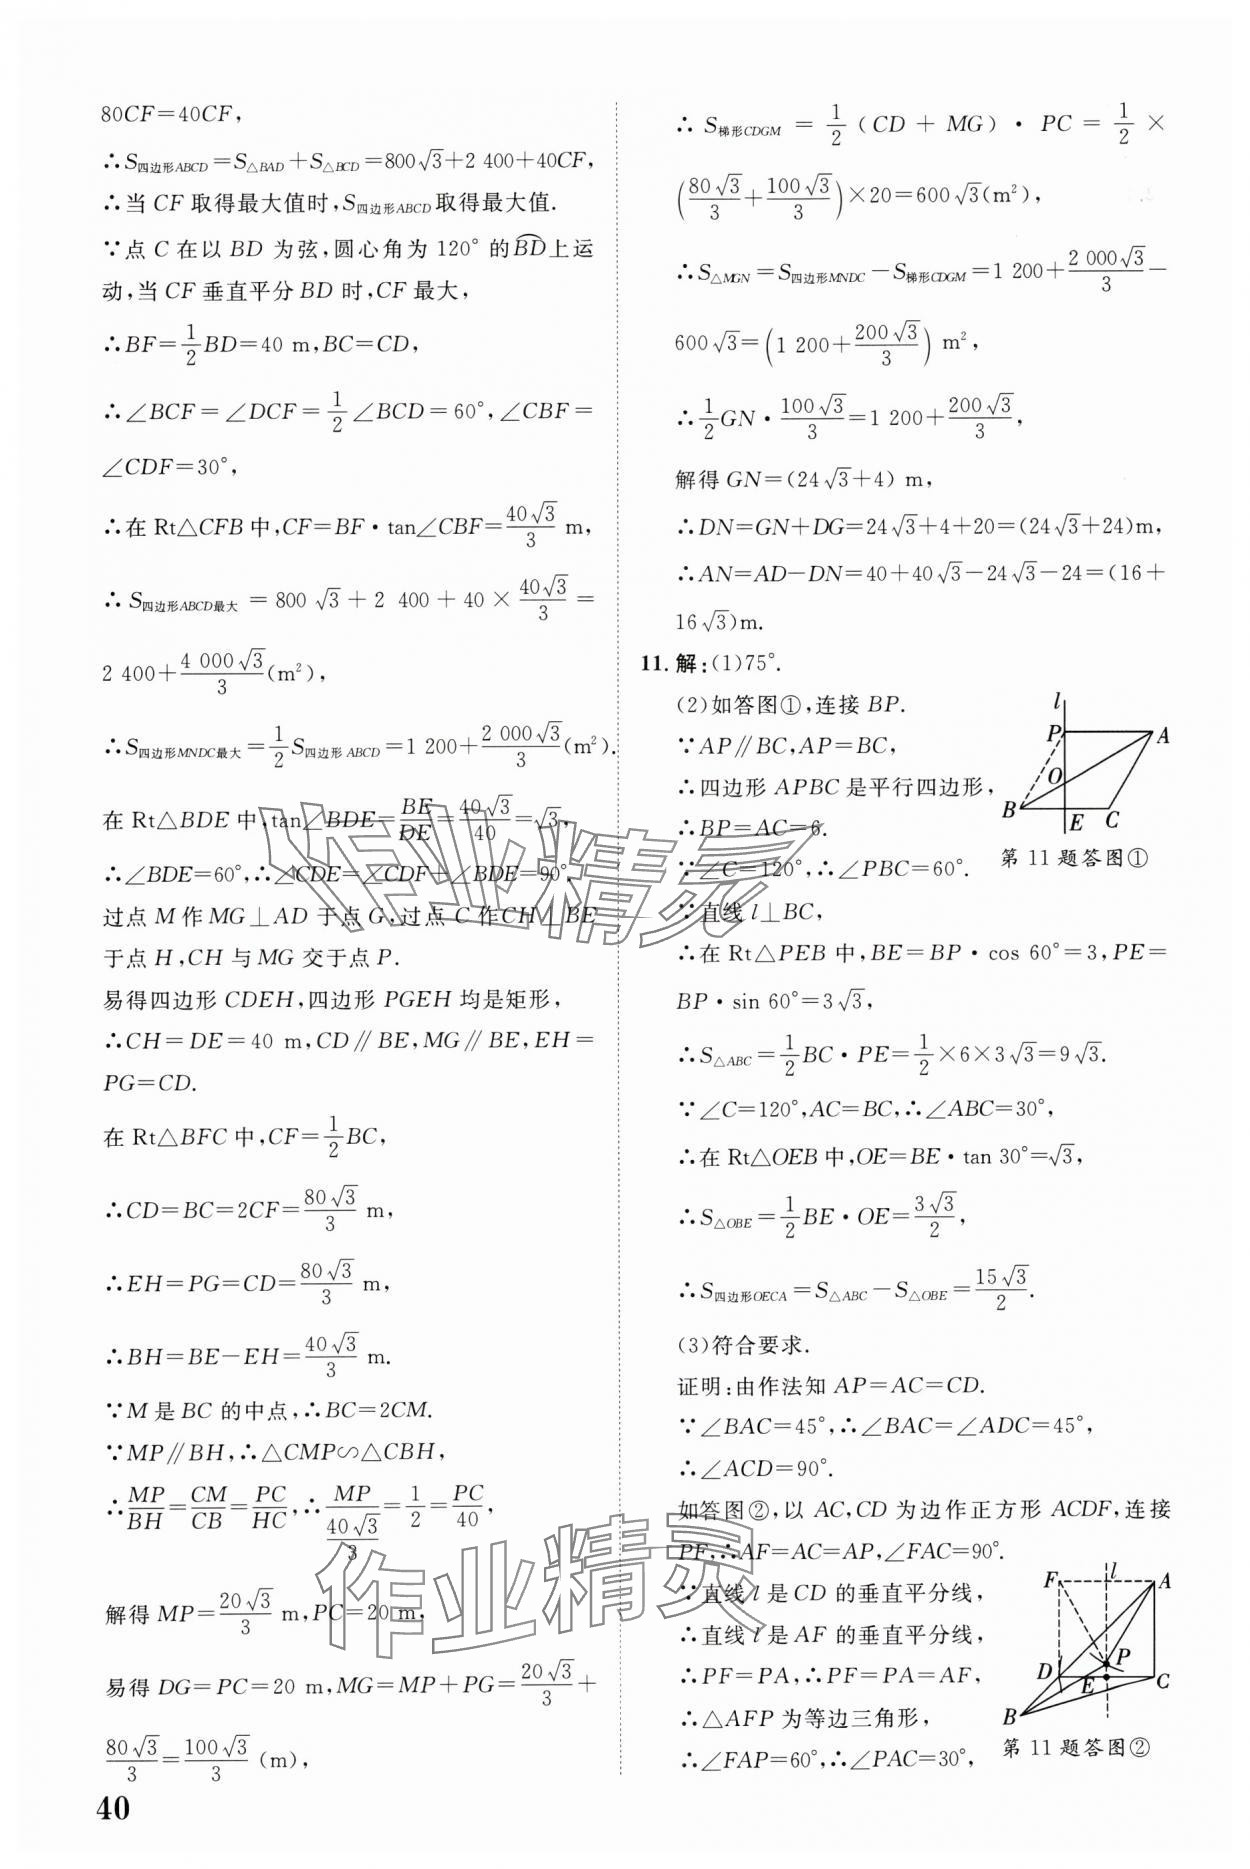 80CF=40CF,
∴S四边形ABCD=S△BAD+S△BCD=800√3+2 400+40CF,
∴当 CF 取得最大值时,S四边形ABCD取得最大值.
∵点 C 在以 BD 为弦,圆心角为 120° 的BD⌒上运
动,当 CF 垂直平分 BD 时,CF 最大,
∴BF=1/2BD=40 m,BC=CD,
∴∠BCF=∠DCF=1/2∠BCD=60°,∠CBF=
∠CDF=30°,
∴在 Rt△CFB 中,CF=BF·tan∠CBF=40√3/3 m,
∴S四边形ABCD最大=800√3+2 400+40×40√3/3=
2 400+4 000√3/3(m²),
∴S四边形MNDC最大=1/2S四边形ABCD=1 200+2 000√3/3(m²).
在 Rt△BDE 中,tan∠BDE=BE/DE=40√3/40=√3,
∴∠BDE=60°,∴∠CDE=∠CDF+∠BDE=90°.
过点 M 作 MG⊥AD 于点 G,过点 C 作CH⊥BE
于点 H,CH 与 MG 交于点 P.
易得四边形 CDEH,四边形 PGEH 均是矩形,
∴CH=DE=40 m,CD∥BE,MG∥BE,EH=
PG=CD.
在 Rt△BFC 中,CF=1/2BC,
∴CD=BC=2CF=80√3/3 m,
∴EH=PG=CD=80√3/3 m,
∴BH=BE-EH=40√3/3 m.
∵M 是 BC 的中点,∴BC=2CM.
∵MP∥BH,∴△CMP∽△CBH,
∴MP/BH=CM/CB=PC/HC,∴MP/(40√3/3)=1/2=PC/40,
解得 MP=20√3/3 m,PC=20 m,
易得 DG=PC=20 m,MG=MP+PG=20√3/3+
80√3/3=100√3/3 (m),
∴S梯形CDGM=1/2(CD+MG)·PC=1/2×
(80√3/3+100√3/3)×20=600√3(m²),
∴S△MGN=S四边形MNDC-S梯形CDGM=1 200+2 000√3/3-
600√3=(1 200+200√3/3) m²,
∴1/2GN·100√3/3=1 200+200√3/3,
解得 GN=(24√3+4) m,
∴DN=GN+DG=24√3+4+20=(24√3+24)m,
∴AN=AD-DN=40+40√3-24√3-24=(16+
16√3)m.
11. 解:(1)75°.
(2)如答图①,连接 BP.
∵AP∥BC,AP=BC,
∴四边形 APBC 是平行四边形,
∴BP=AC=6.
∵∠C=120°,∴∠PBC=60°.
∵直线 l⊥BC,
l
P
A
O
B
E
C
第 11 题答图①
∴在 Rt△PEB 中,BE=BP·cos 60°=3,PE=
BP·sin 60°=3√3,
∴S△ABC=1/2BC·PE=1/2×6×3√3=9√3.
∵∠C=120°,AC=BC,∴∠ABC=30°,
∴在 Rt△OEB 中,OE=BE·tan 30°=√3,
∴S△OBE=1/2BE·OE=3√3/2,
∴S四边形OECA=S△ABC-S△OBE=15√3/2.
(3)符合要求.
证明:由作法知 AP=AC=CD.
∵∠BAC=45°,∴∠BAC=∠ADC=45°,
∴∠ACD=90°.
如答图②,以 AC,CD 为边作正方形 ACDF,连接
PF,∴AF=AC=AP,∠FAC=90°.
∵直线 l 是 CD 的垂直平分线,
∴直线 l 是 AF 的垂直平分线,
∴PF=PA,∴PF=PA=AF,
∴△AFP 为等边三角形,
∴∠FAP=60°,∴∠PAC=30°,
F
l
A
P
D
E
C
B
第 11 题答图②
40
作业精灵
作业精灵